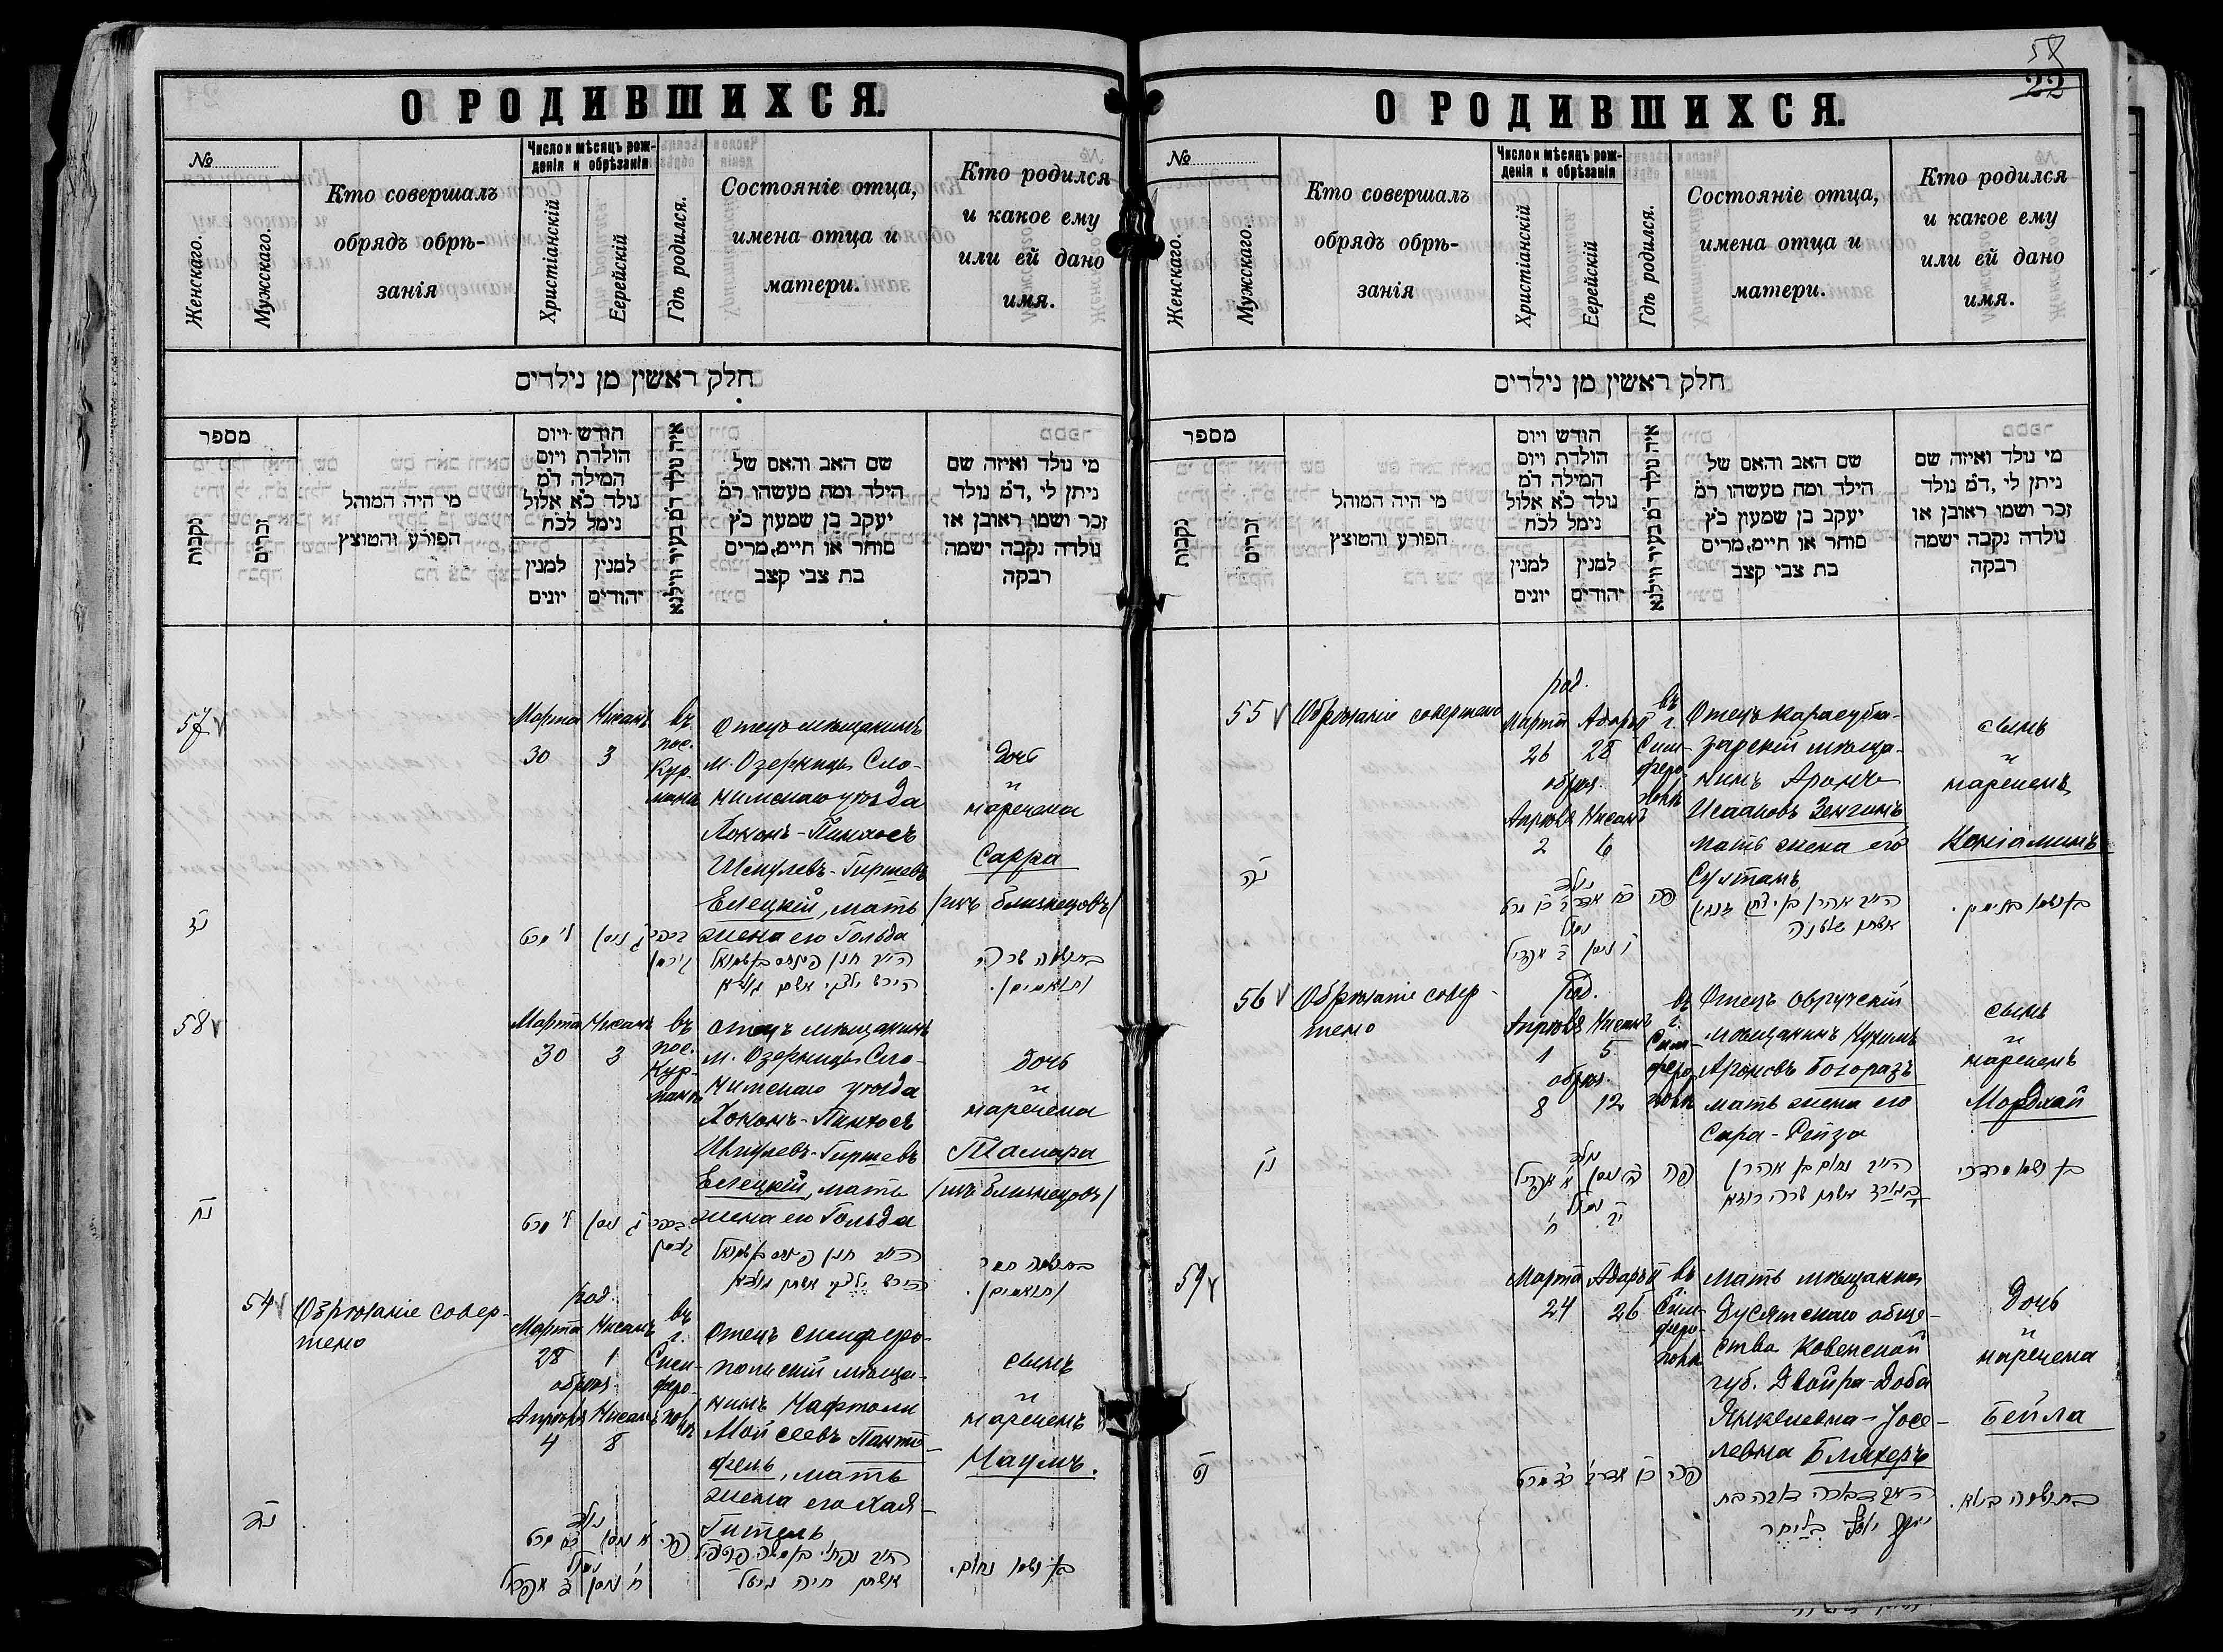 О РОДИВШИХСЯ.
№
Женскаго.
Мужскаго.
Кто совершалъ
обрядъ обрѣ-
занія
Число и мѣсяцъ рож-
денія и обрѣзанія
Христіанскій
Еерейскій
Гдѣ родился.
Состояніе отца,
имена отца и
матери.
Кто родился
и какое ему
или ей дано
имя.
חלק ראשין מן נילדים
מספר
נקבות
זכרים
מי היה המוהל
הפורע והטוצץ
חודש ויום
הולדת ויום
המילה דמ
נולד כא אלול
נימל לכח
למנין
יונים
למנין
יהודים
איה נולד דמ בעיר ווילנא
שם האב והאם של
הילד ומה מעשהו רמ
יעקב בן שמעון כץ
סוחר או חיים, מרים
בת צבי קצב
מי נולד ואיזה שם
ניתן לי, דמ נולד
זכר ושמו ראובן או
נולדה נקבה ישמה
רבקה
57
Марта
30
Нисанъ
3
въ
пос.
Кур-
манъ
Отецъ мѣщанинъ
м. Озерницы Сло-
нимскаго уѣзда
Хононъ-Пинхосъ
Шмулевъ-Гиршевъ
Елецкій, мать
жена его Гольда
дочь
и
наречена
Сарра
/изъ близнецовъ/
נז
ג ניסן
ל מרט
58
Марта
30
Нисанъ
3
въ
пос.
Кур-
манъ
отецъ мѣщанинъ
м. Озерницы Сло-
нимскаго уѣзда
Хононъ-Пинхосъ
Шмулевъ-Гиршевъ
Елецкій, мать
жена его Гольда
дочь
и
наречена
Тамара
/изъ близнецовъ/
נח
ג ניסן
ל מרט
54
Обрѣзаніе совер-
шено
род.
Марта
28
Нисанъ
1
обрѣз.
Апрѣля
4
Нисанъ
8
въ
г.
Сим-
феро-
полѣ
Отецъ симферо-
польскій мѣща-
нинъ Нафтоли
Мойсеевъ Панто-
фель, мать
жена его Хая-
Гитель
сынъ
и
нареченъ
Наумъ.
נד
נולד
א ניסן
כח מרט
נימול
ח ניסן
פה
אשתו חיה גיטל
בן ושמו נחום.
58
22
О РОДИВШИХСЯ.
№
Женскаго.
Мужскаго.
Кто совершалъ
обрядъ обрѣ-
занія
Число и мѣсяцъ рож-
денія и обрѣзанія
Христіанскій
Еерейскій
Гдѣ родился.
Состояніе отца,
имена отца и
матери.
Кто родился
и какое ему
или ей дано
имя.
חלק ראשין מן נילדים
מספר
נקבות
זכרים
מי היה המוהל
הפורע והטוצץ
חודש ויום
הולדת ויום
המילה דמ
נולד כא אלול
נימל לכח
למנין
יונים
למנין
יהודים
איה נולד דמ בעיר ווילנא
שם האב והאם של
הילד ומה מעשהו רמ
יעקב בן שמעון כץ
סוחר או חיים, מרים
בת צבי קצב
מי נולד ואיזה שם
ניתן לי, דמ נולד
זכר ושמו ראובן או
נולדה נקבה ישמה
רבקה
55
Обрѣзаніе совершено
род.
Марта
26
Адаръ II
28
обрѣз.
Апрѣля
2
Нисанъ
6
въ
г.
Сим-
феро-
полѣ
Отецъ карасуба-
зарскій мѣща-
нинъ Аронъ
Исааковъ Зенгинъ
мать жена его
Султанъ
сынъ
и
нареченъ
Веніаминъ
נה
נולד
פה
נימול
ו ניסן
ב אפריל
בן ושמו בנימין.
56
Обрѣзаніе совер-
шено
род.
Апрѣля
1
Нисанъ
5
обрѣз.
8
12
въ
г.
Сим-
феро-
полѣ
Отецъ овручскій
мѣщанинъ Нухимъ
Ароновъ Богоразъ
мать жена его
Сара-Рейза
сынъ
и
нареченъ
Мордхай
נו
נולד
ה ניסן
א אפריל
נימול
יב
ח
פה
בן ושמו מרדכי
59
Марта
24
Адаръ II
26
въ
Сим-
феро-
полѣ
Мать мѣщанка
Дусятскаго обще-
ства Ковенской
губ. Двойра-Доба
Янкелевна-Іосе-
левна Блахеръ
дочь
и
наречена
Бейла
נט
פה
כד מרט